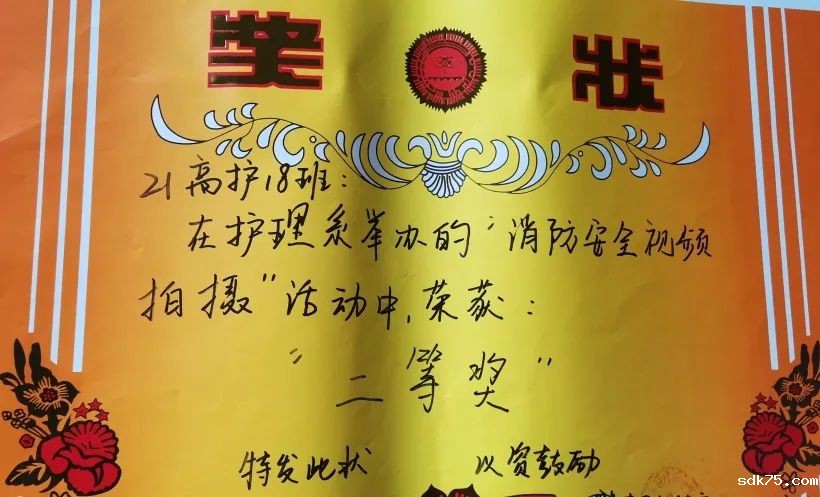 奖状
21高护18班：
在护理系举办的“消防安全视频
拍摄”活动中，荣获：
“二等奖”
特发此状 以资鼓励
sdk75.com